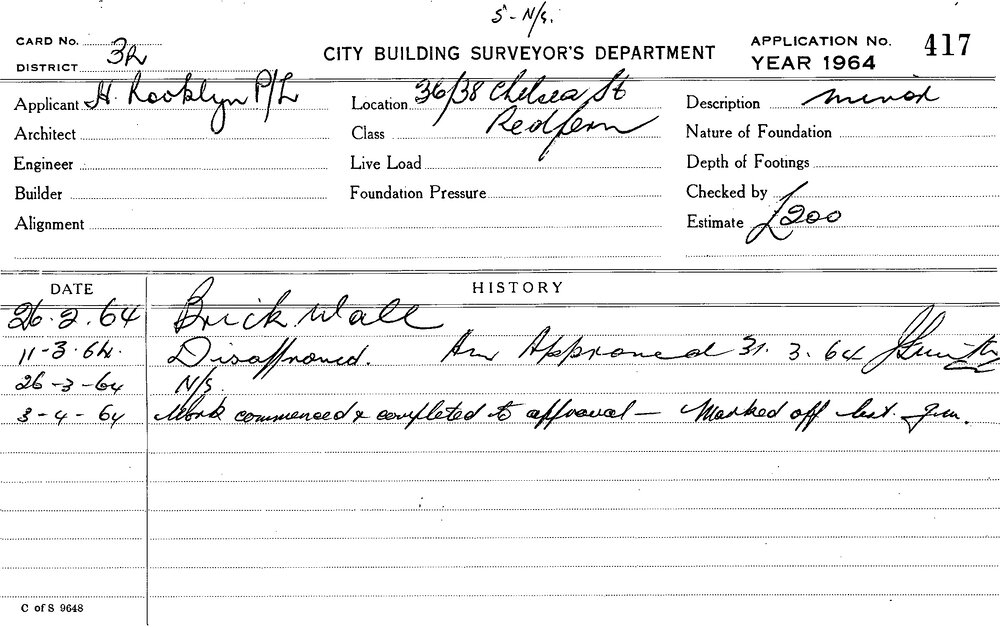 5 - N/S.
CARD No.
DISTRICT 3h
CITY BUILDING SURVEYOR'S DEPARTMENT
APPLICATION No. 417
YEAR 1964
Applicant H. Rooklyn P/L
Location 36/38 Chelsea St
Redfern
Description minor
Architect
Class
Nature of Foundation
Engineer
Live Load
Depth of Footings
Builder
Foundation Pressure
Checked by
Alignment
Estimate £200
DATE HISTORY
26.2.64 Brick Wall
11-3.64. Disapproved. Approved 31.3.64
26-3-64 N/S.
3-4-64 Work commenced & completed to approval — Marked off list.
C of S 9648